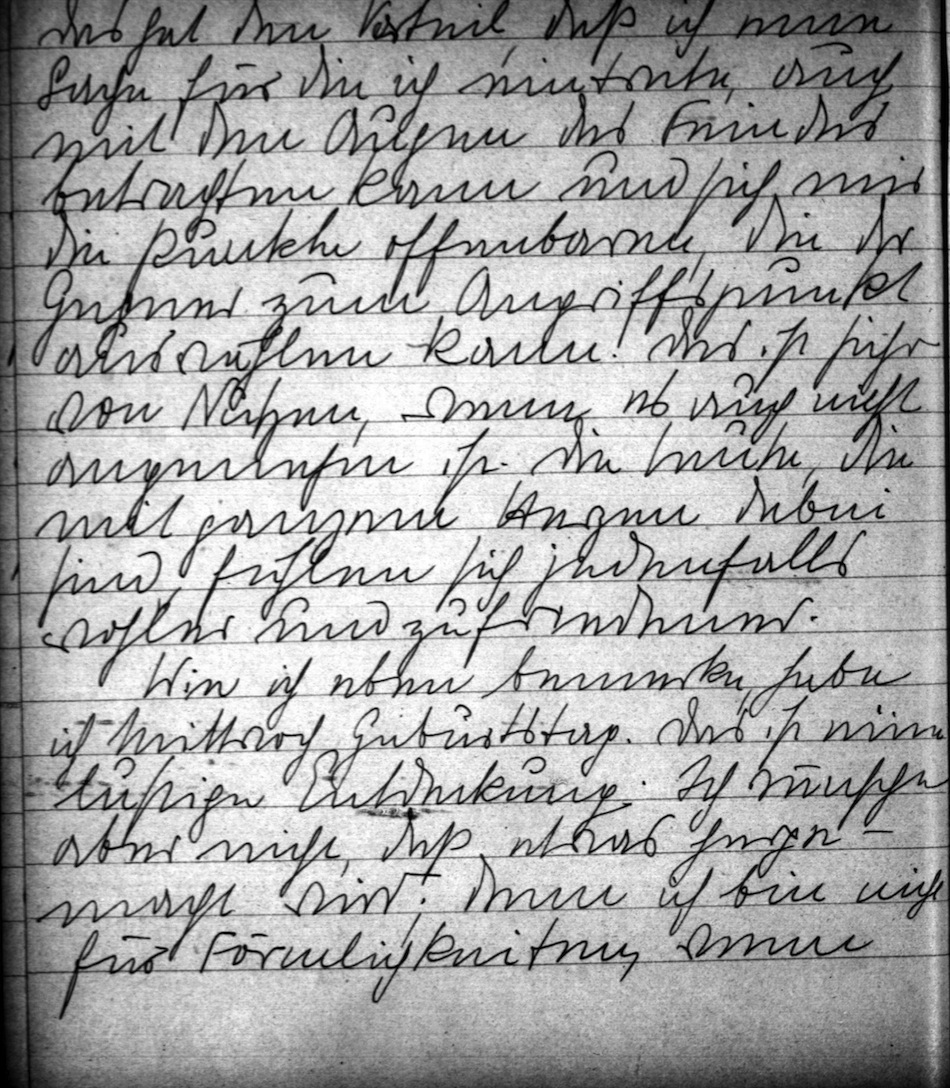 das hat den Vorteil, daß ich meine
Sache für die ich eintrete, auch
mit den Augen des Feindes
betrachten kann und sich mir
die Punkte offenbaren, die der
Gegner zum Angriffspunkt
auswählen kann. Das ist sehr
von Nutzen, wenn es auch nicht
angenehm ist. Die Leute, die
mit ganzem Herzen dabei
sind, fühlen sich jedenfalls
wohler und zufriedener.
Wie ich eben bemerke, habe
ich Mittwoch Geburtstag. Das ist eine
lustige Entdeckung. Ich wünsche
aber nicht, daß etwas herge-
macht wird; denn ich bin nicht
für Förmlichkeiten, wenn